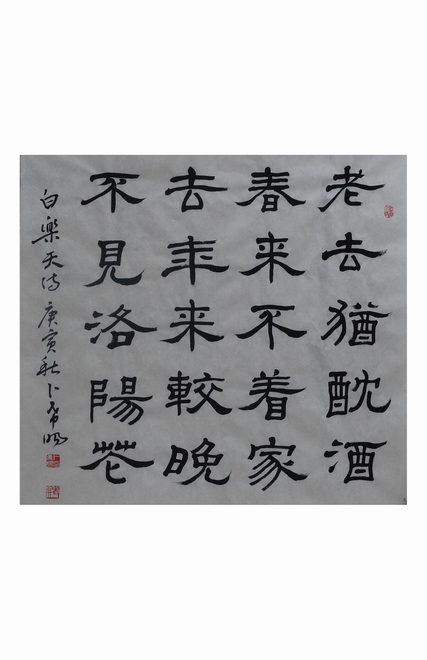 老去猶酖酒
春来不着家
去年来較晚
不見洛陽花
白樂天詩 庚寅秋 卜希暘